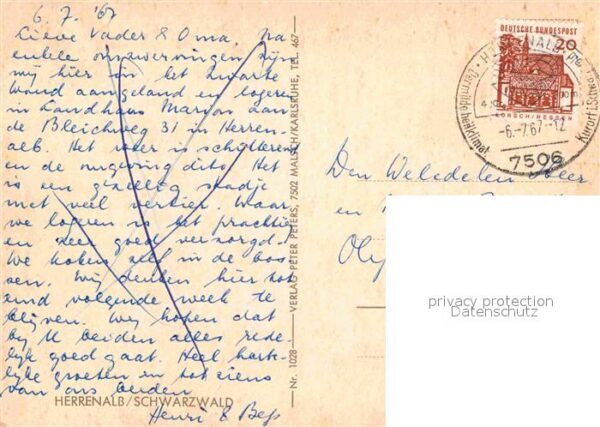 6.7.'67
Lieve Vader & Oma. Na
enkele omzwervingen zijn
wij hier in het zwarte
woud aangeland en logeren
in Landhaus Marion aan
de Bleichweg 31 in Herren-
alb. Het weer is schitterend
en de omgeving dito. Het
is een gezellig stadje
met veel vertier. Waar
we logeren is het prachtig
en zeer goed verzorgd.
We lopen veel in de bos
sen. Wij denken hier tot
eind volgende week te
blijven. Wij hopen dat
bij U beiden alles rede-
lijk goed gaat. Heel harte-
lijke groeten en tot ziens
van ons beiden
Henri & Bep
HERRENALB/SCHWARZWALD
Nr. 1028 — VERLAG PETER PETERS, 7502 MALSCH/KARLSRUHE, TEL. 467
DEUTSCHE BUNDESPOST
20
LORSCH/HESSEN
HERRENALB
-6.-7.67-12
7506
Den Weledelen Heer
en
Oly
privacy protection
Datenschutz